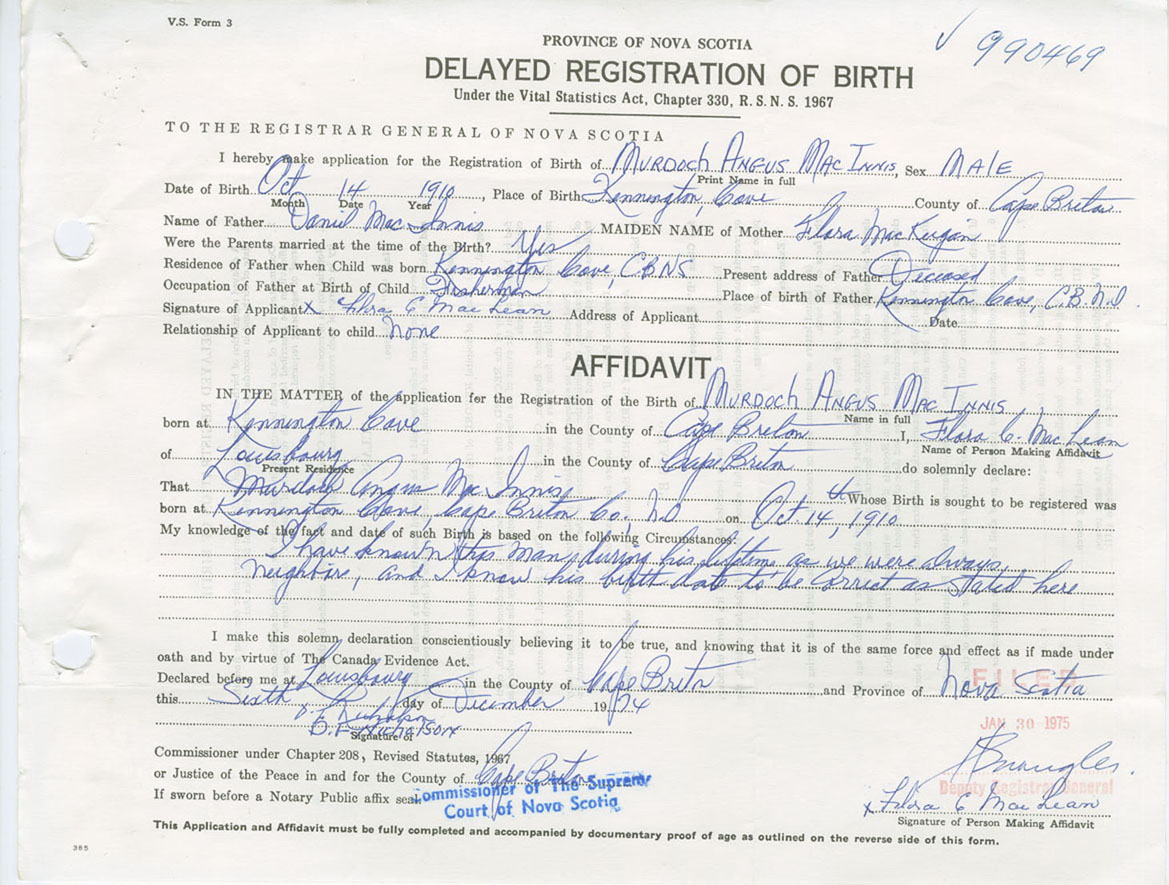 V.S. Form 3
✓ 990469
PROVINCE OF NOVA SCOTIA
DELAYED REGISTRATION OF BIRTH
Under the Vital Statistics Act, Chapter 330, R. S. N. S. 1967
TO THE REGISTRAR GENERAL OF NOVA SCOTIA
I hereby make application for the Registration of Birth of MURDOCH ANGUS MAC INNIS, Sex MALE
Print Name in full
Date of Birth Oct 14 1910, Place of Birth Kennington, Cove County of Cape Breton
Month Date Year
Name of Father Daniel Mac Innis MAIDEN NAME of Mother Flora MacKeigan
Were the Parents married at the time of the Birth? Yes
Residence of Father when Child was born Kennington Cove, CBNS Present address of Father Deceased
Occupation of Father at Birth of Child Fisherman Place of birth of Father Kennington Cove, C.B. N.S.
Signature of Applicant x Flora C MacLean Address of Applicant Date
Relationship of Applicant to child None
AFFIDAVIT
IN THE MATTER of the application for the Registration of the Birth of MURDOCH ANGUS MAC INNIS
Name in full
born at Kennington Cove in the County of Cape Breton I, Flora C. MacLean
Name of Person Making Affidavit
of Louisbourg in the County of Cape Breton do solemnly declare:
Present Residence
That Murdoch Angus Mac Innis Whose Birth is sought to be registered was
born at Kennington Cove, Cape Breton Co., N.S on Oct 14, 1910
My knowledge of the fact and date of such Birth is based on the following Circumstances:
I have known this man, during his lifetime as we were always
neighbors, and I know his birth date to be correct as stated here
I make this solemn declaration conscientiously believing it to be true, and knowing that it is of the same force and effect as if made under
oath and by virtue of The Canada Evidence Act.
Declared before me at Louisbourg in the County of Cape Breton and Province of Nova Scotia
FILED
this Sixth day of December 1974
JAN 30 1975
Signature of
Commissioner under Chapter 208, Revised Statutes, 1967
or Justice of the Peace in and for the County of Cape Breton
If sworn before a Notary Public affix seal.
Commissioner of The Supreme
Court of Nova Scotia
Deputy Registrar General
x Flora C MacLean
Signature of Person Making Affidavit
This Application and Affidavit must be fully completed and accompanied by documentary proof of age as outlined on the reverse side of this form.
365